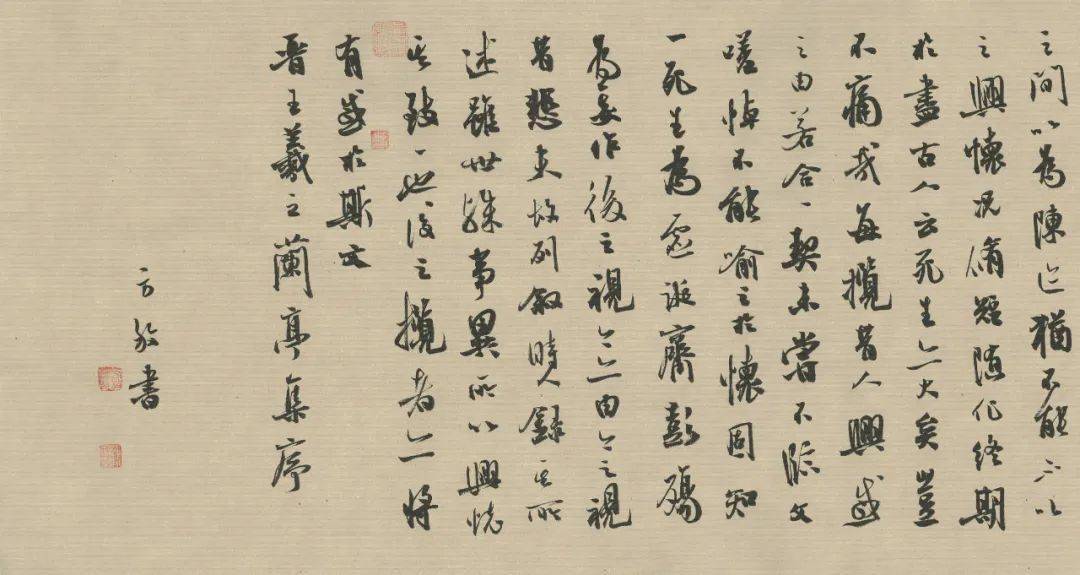 之間以為陳迹猶不能不以
之興懷況脩短隨化終期
於盡古人云死生亦大矣豈
不痛哉每攬昔人興感
之由若合一契未嘗不臨文
嗟悼不能喻之於懷固知
一死生為虛誕齊彭殤
為妄作後之視今亦由今之視
昔悲夫故列敘時人錄其所
述雖世殊事異所以興懷
其致一也後之攬者亦將
有感於斯文
晉王羲之蘭亭集序
方書